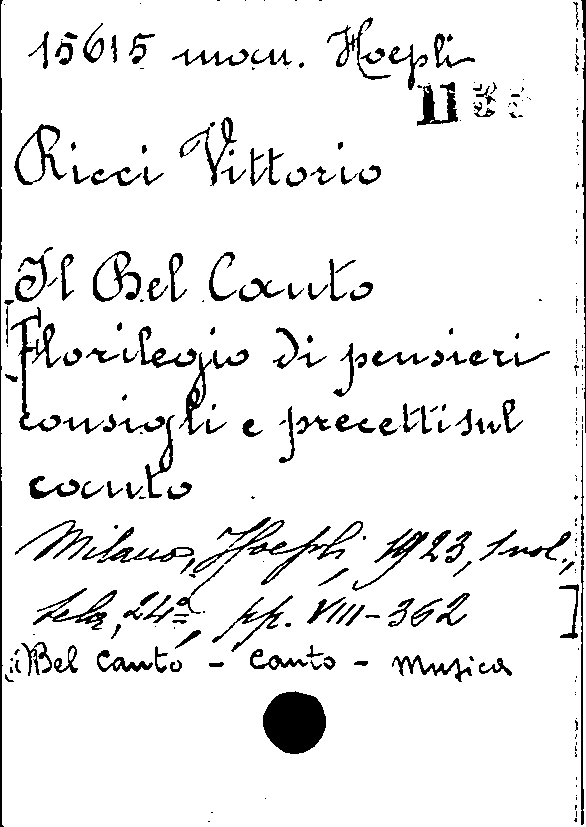 15615 man. Hoepli
11
Ricci Vittorio
Il Bel Canto
Florilegio di pensieri
consigli e precetti sul
canto
Milano, Hoepli, 1923, 1 vol.,
tela, 24º, pp. VIII-362 ]
Bel canto - canto - musica